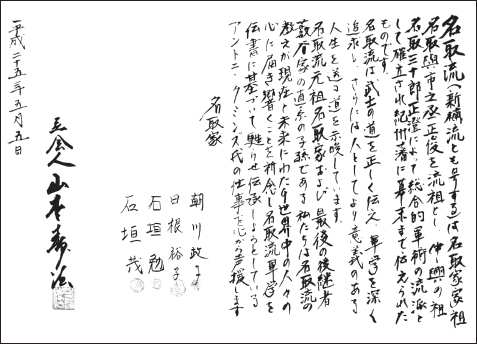 名取流(新楠流とも号する)は名取家家祖
名取與市之丞正俊を流祖とし、中興の祖
名取三十郎正澄によって総合的軍術の流派と
して確立され紀州藩に幕末まで伝えられた
ものです。
名取流は武士の道を正しく伝え、軍学を深く
追求し、さらには人としてより意義のある
人生を送る道を示唆しています。
名取流元祖名取家および最後の後継者
家の直系の子孫である私たちは名取流の
教えが現在と未来にわたり世界中の人々の
心に届き響くことを祈念し名取流軍学を
伝書に基づいて甦らせ伝承しようとしている
アントニー・クミンズ氏の仕事を心から声援します
名取家
朝川政子
日根裕子
石垣勉
石垣茂
平成二十五年五月五日
立会人 山本寿法